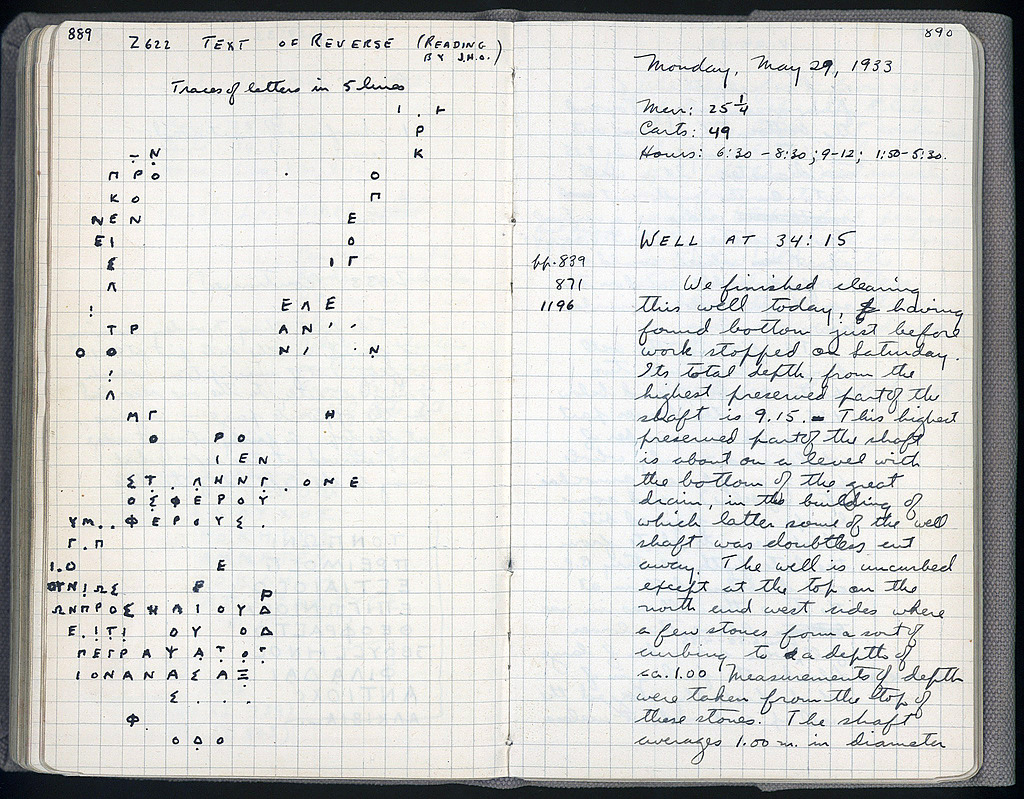 889
Z622 TEXT OF REVERSE (READING BY J.H.O.)
Traces of letters in 5 lines
Ι . Ͱ
Ρ
Ν Κ
Π Ρ Ο . Ο
Κ Ο Π
Ν Ε Ν Ε
Ε Ι Ο
Ε Ι Γ
Λ
! Ε Λ Ε
Τ Ρ Α Ν ' '
Ο Ο Ν Ι . Ν
!
Λ
Μ Γ Η
Ο Ρ Ο
Ι Ε Ν
Σ Τ . Λ Η Ν Γ . Ο Ν Ε
Ο Σ Φ Ε Ρ Ο Υ
Υ Μ . . Φ Ε Ρ Ο Υ Σ .
Γ . Π
Ι . Ο Ε
Ν ! Ω Σ Ρ
Ρ
Ω Ν Π Ρ Ο Σ Η Λ Ι Ο Υ Δ
Ε . ! Τ ! Ο Υ Ο Δ
Π Ε Γ Ρ Α Υ Α Τ Ο Γ
Ι Ο Ν Α Ν Α Σ Α Ξ
Σ . . .
Φ
Ο Δ Ο
890
Monday, May 29, 1933
Men: 25 1/4
Carts: 49
Hours: 6:30 - 8:30; 9-12; 1:50-5:30.
WELL AT 34:15
pp. 839
871
1196
We finished clearing
this well today, having
found bottom just before
work stopped on Saturday.
Its total depth, from the
highest preserved part of the
shaft is 9.15. – This highest
preserved part of the shaft
is about on a level with
the bottom of the great
drain, in the building of
which latter some of the well
shaft was doubtless cut
away. The well is uncurbed
except at the top on the
north and west sides where
a few stones form a sort of
curbing to a depth of
ca. 1.00 Measurements of depth
were taken from the top of
these stones. The shaft
averages 1.00 m. in diameter